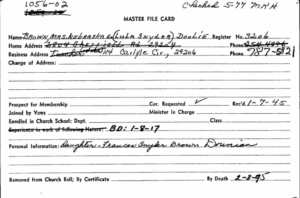 1056-02 Checked 5-77 MNH
1056-02
MASTER FILE CARD
Name Brown, Mrs. (Lula Snyder) Doolie Register No. 3206
Home Address Rd 29204 Phone 254-4896
Business Address 114 Carlyle Cir, 29206 Phone 787-5821
Change of Address:
Prospect for Membership Cor. Requested ✓ Rec'd. 1-7-45
Joined by Vows Minister in Charge
Enrolled in Church School: Dept. Class
Experience in work of following Nature: BD: 1-8-17
Personal Information: Daughter - Frances Snyder Brown
Removed from Church Roll; By Certificate By Death 2-3-95